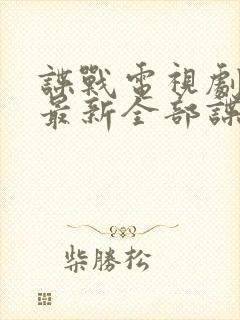 諜戰電視劇
最新全部諜
柴勝松